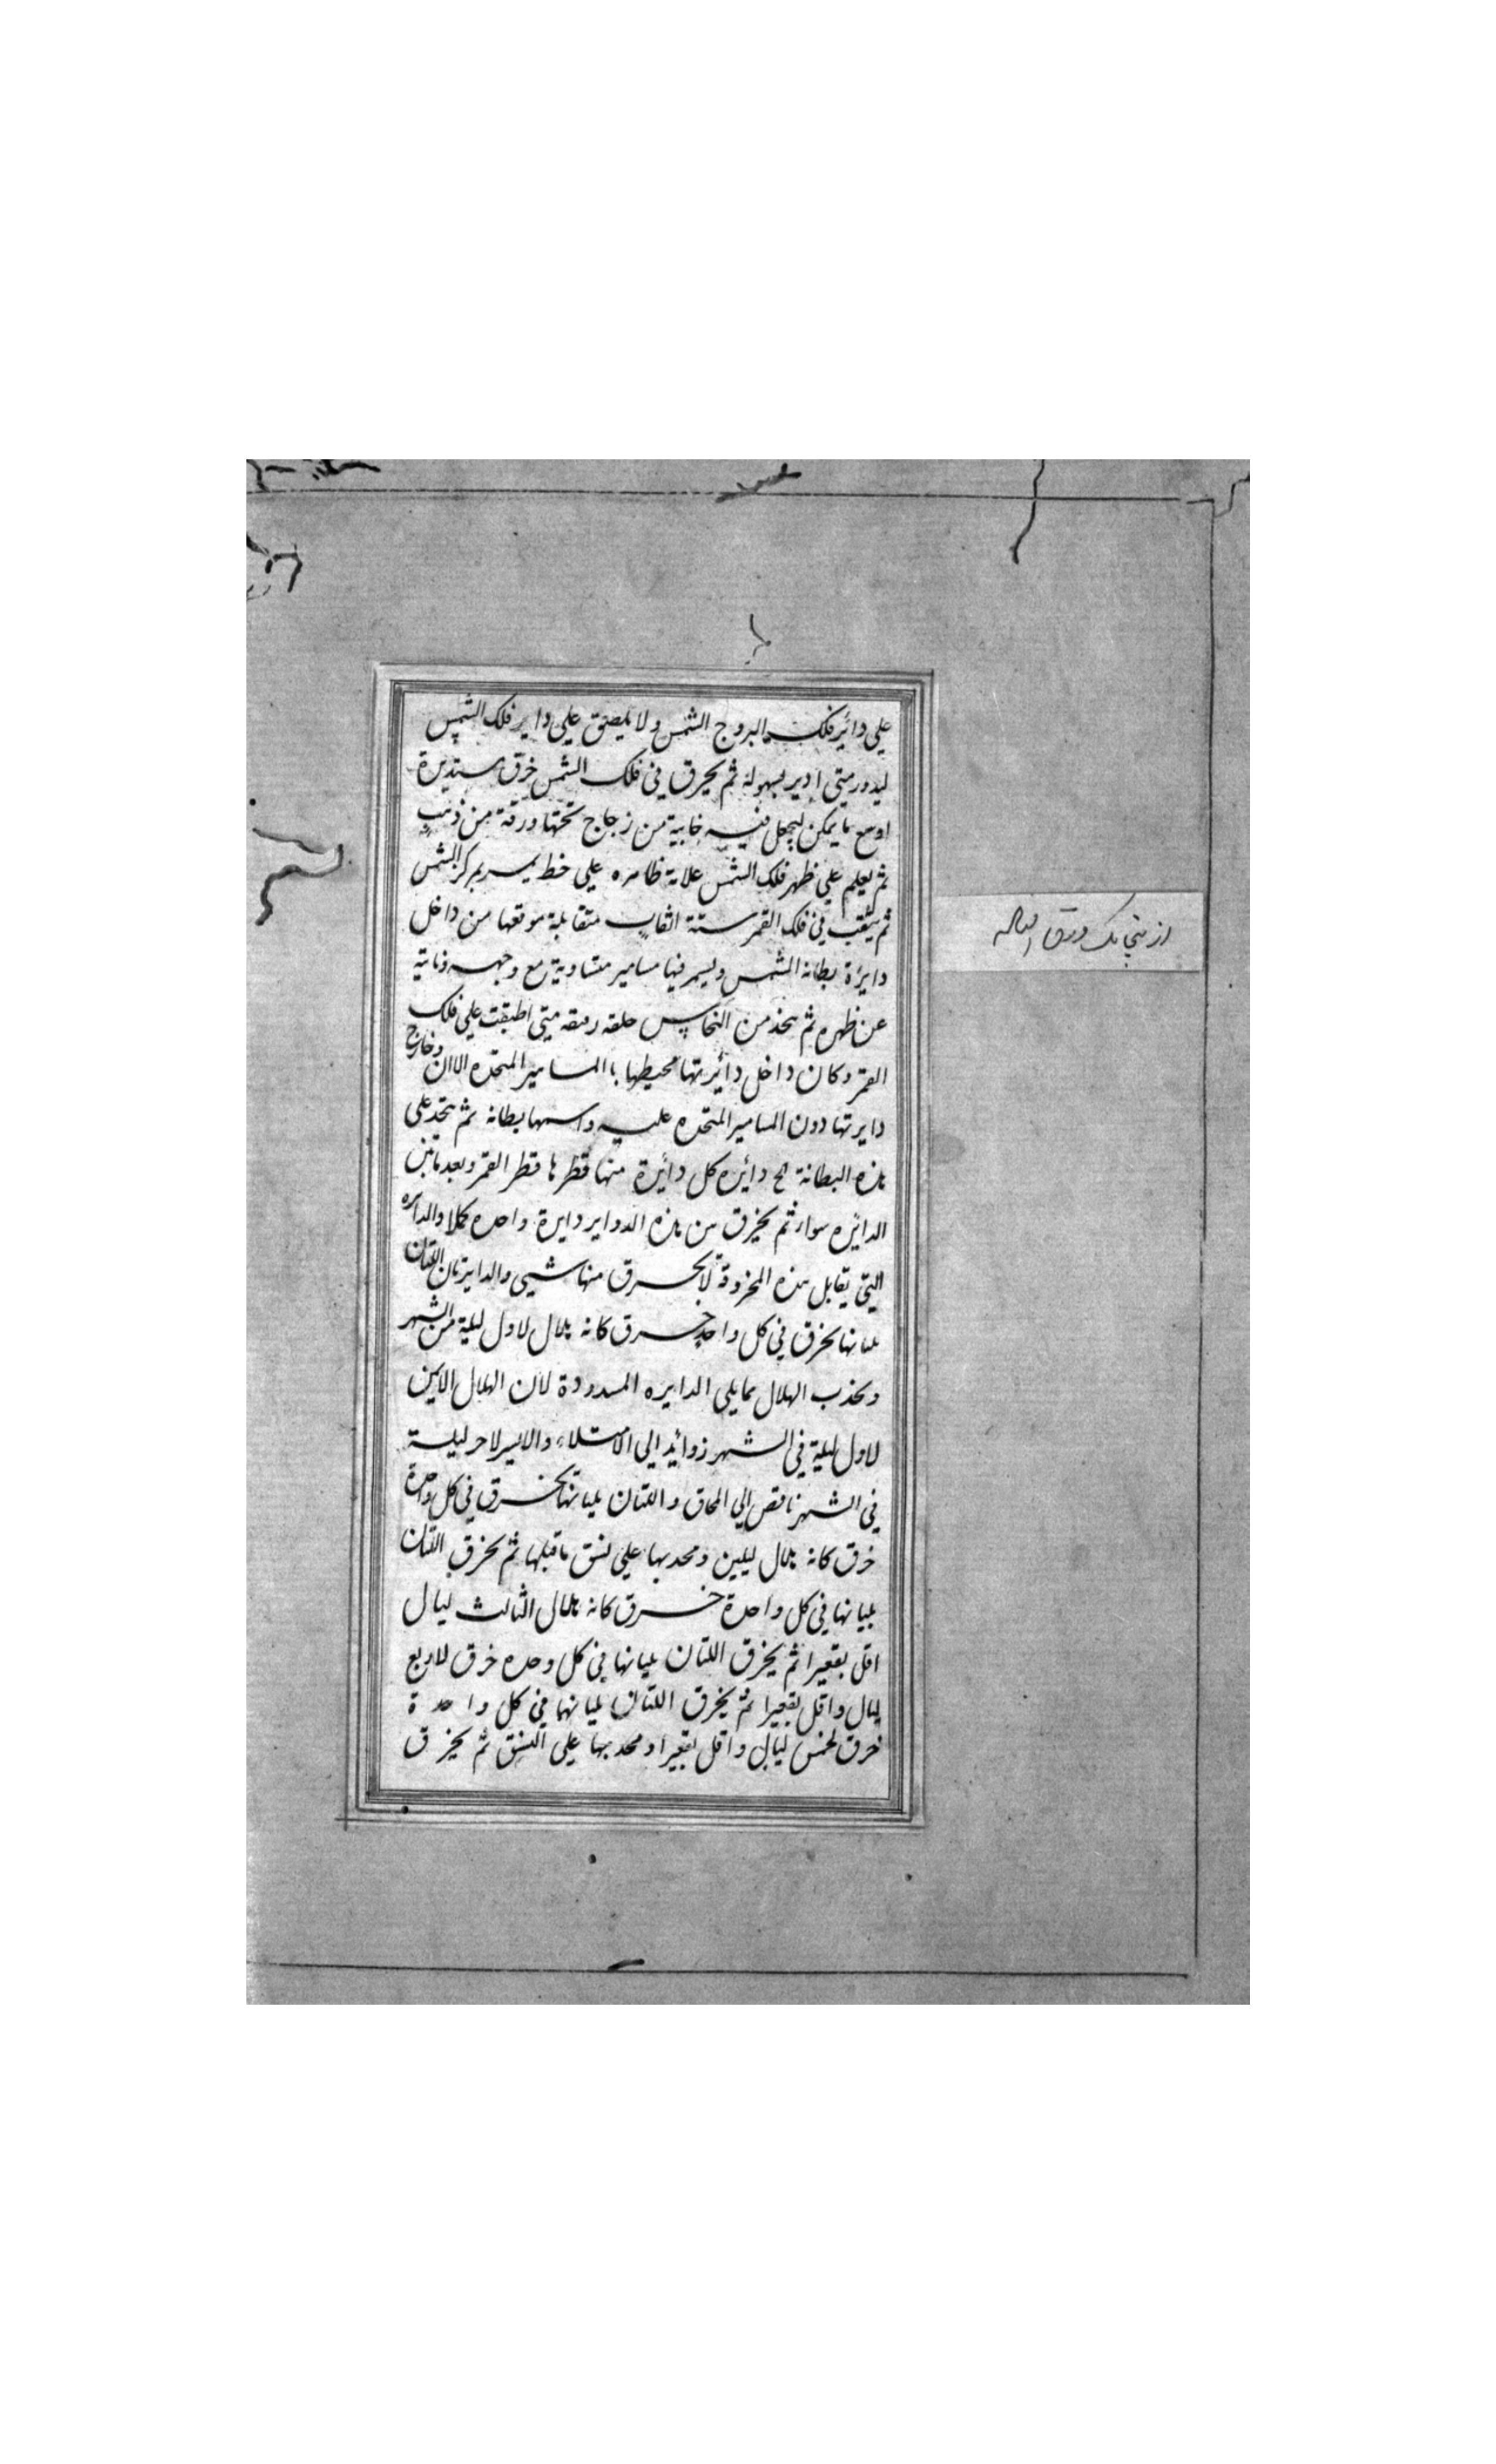 علي دائر فلك البروج الشمس ولا يلصق علي داير فلك الشمس
ليدور متي ادير بسهولة ثم يخرق في فلك الشمس خرق مستديرة
اوسع ما يمكن ليجعل فيه خابية من زجاج تحتها ورقة من ذهب
ثم يعلم علي ظهر فلك الشمس علامة ظاهره علي خط يمر بمركز الشمس
ثم يثقب في فلك القمر ستة اثقاب متقابلة موقعها من داخل
دايرة بطانه الشمس ويسمر فيها مسامير متساوية مع وجهه وناتية
عن ظهره ثم يتخذ من النحاس حلقه رقيقه متي اطبقت علي فلك
القمر وكان داخل دائرتها محيطها باالمسامير المتخده الاان وخارج
دايرتها دون المسامير المتخده عليه واسمها بطانه ثم يتخذ علي
هذه البطانة دائره كل دائرة منها قطرها قطر القمر وبعد مابين
الدائره سواء ثم يخرق من هذه الدواير دايرة واحده كملا والدائره
التي يقابل هذه المخروقة لا يخرق منها شيي والدايرتان اللتان
يليانها يخرق في كل واحد خرق كانه هلال لاول ليلة من الشهر
ويحذب الهلال مما يلي الدايره المسدودة لان الهلال الايمن
لاول ليلة في الشهر زوائد الي الامتلاء والايسر لاخر ليلة
في الشهر ناقص الي المحاق واللتان يليانها يخرق في كل واحدة
خرق كانه هلال ليلين ومحدبها علي نسق ماقبلها ثم يخرق اللتان
يليانها في كل واحدة خرق كانه هلال الثالث ليال
اقل بقعيرا ثم يخرق اللتان يليانها في كل وحده خرق لاربع
ليال واقل بقعيرا ثم يخرق اللتان يليانهما في كل واحدة
خرق لخمس ليالي واقل بقعيرا ومحدبها علي النسق ثم يخرق
يك ورق